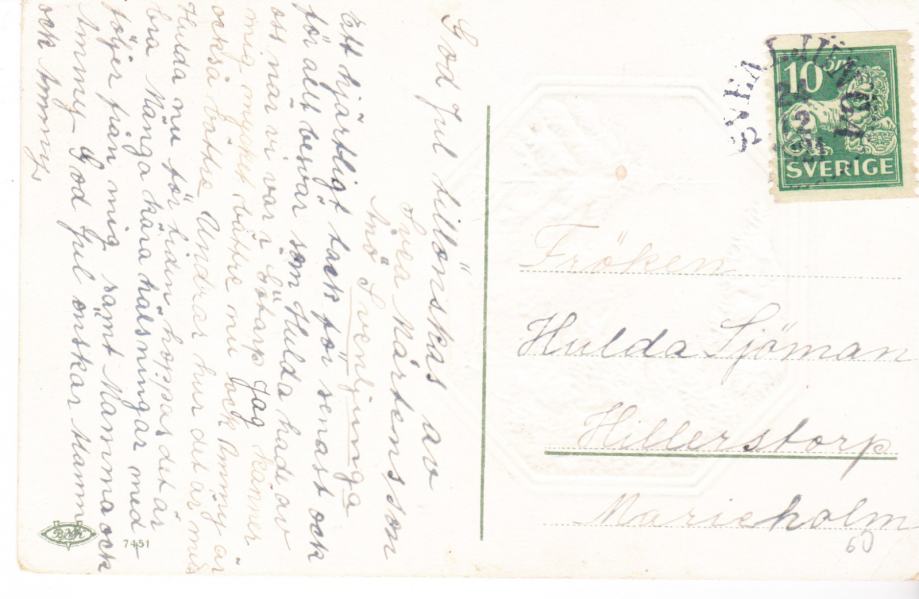 God Jul tillönskas av
Svea Mårtensson
Svenljunga
Ett hjärtligt tack för senast och
för allt besvär som Hulda hade av
oss när vi var i Götarp Jag känner
mig mycket bättre nu och Ammy är
också bättre Undrar hur det är med
Hulda nu för tiden hoppas det är
bra Många kära hälsningar med
följer från mig samt Mamma och
God Jul önskar Mamma
och
SVENLJUNGA
10 öre
SVERIGE
Fröken
Hulda Sjöman
Hillerstorp
Marieholm
60
7451